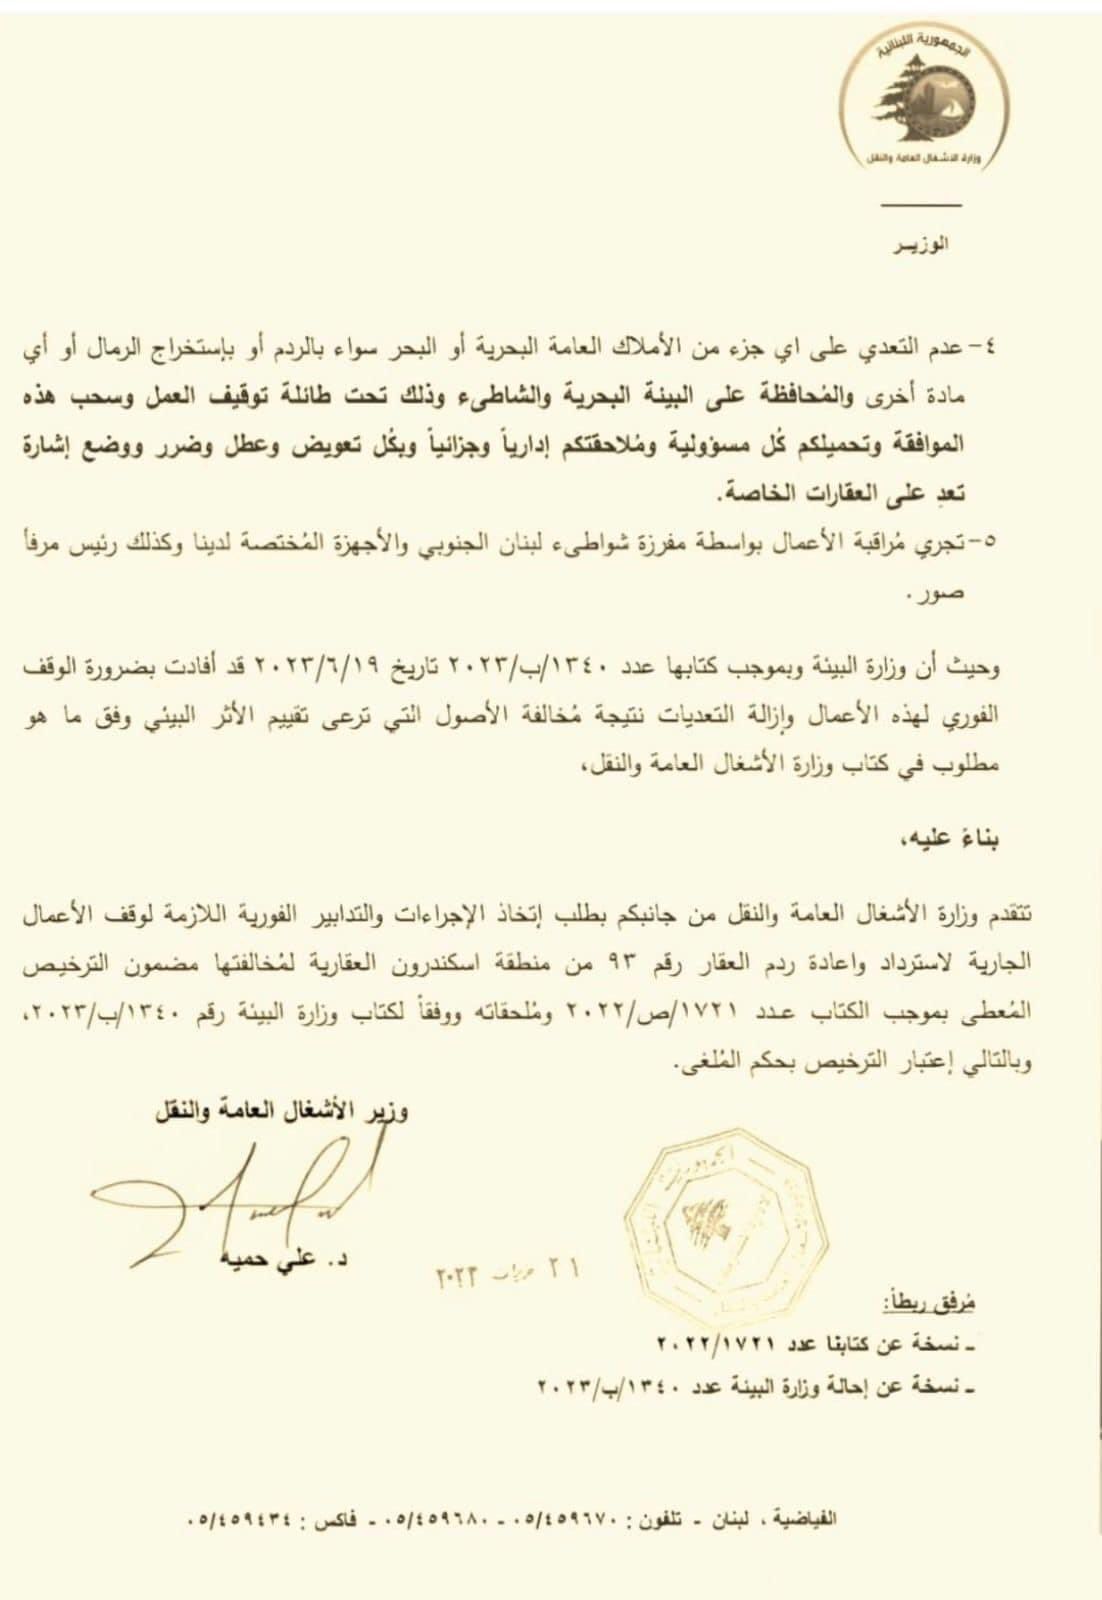 الجمهورية اللبنانية
وزارة الاشغال العامة والنقل
الوزيـر
٤- عدم التعدي على اي جزء من الأملاك العامة البحرية أو البحر سواء بالردم أو بإستخراج الرمال أو أي
مادة أخرى والمُحافظة على البيئة البحرية والشاطىء وذلك تحت طائلة توقيف العمل وسحب هذه
الموافقة وتحميلكم كُل مسؤولية ومُلاحقتكم إدارياً وجزائياً وبكُل تعويض وعطل وضرر ووضع إشارة
تعدِ على العقارات الخاصة.
٥- تجري مُراقبة الأعمال بواسطة مفرزة شواطىء لبنان الجنوبي والأجهزة المُختصة لدينا وكذلك رئيس مرفأ
صور.
وحيث أن وزارة البيئة وبموجب كتابها عدد ١٣٤٠/ب/٢٠٢٣ تاريخ ٢٠٢٣/٦/١٩ قد أفادت بضرورة الوقف
الفوري لهذه الأعمال وإزالة التعديات نتيجة مُخالفة الأصول التي ترعى تقييم الأثر البيئي وفق ما هو
مطلوب في كتاب وزارة الأشغال العامة والنقل،
بناءً عليه،
تتقدم وزارة الأشغال العامة والنقل من جانبكم بطلب إتخاذ الإجراءات والتدابير الفورية اللازمة لوقف الأعمال
الجارية لاسترداد واعادة ردم العقار رقم ٩٣ من منطقة اسكندرون العقارية لمُخالفتها مضمون الترخيص
المُعطى بموجب الكتاب عـدد ١٧٢١/ص/٢٠٢٢ ومُلحقاته ووفقاً لكتاب وزارة البيئة رقم ١٣٤٠/ب/٢٠٢٣،
وبالتالي إعتبار الترخيص بحكم المُلغى.
وزير الأشغال العامة والنقل
د. علي حميه
٢١ حزيران ٢٠٢٣
مُرفق ربطاً:
ـ نسخة عن كتابنا عدد ٢٠٢٢/١٧٢١
ـ نسخة عن إحالة وزارة البيئة عدد ١٣٤٠/ب/٢٠٢٣
الفياضية ، لبنان - تلفون : ٠٥/٤٥٩٦٧٠ - ٠٥/٤٥٩٦٨٠ - فاكس : ٠٥/٤٥٩٤٣٤